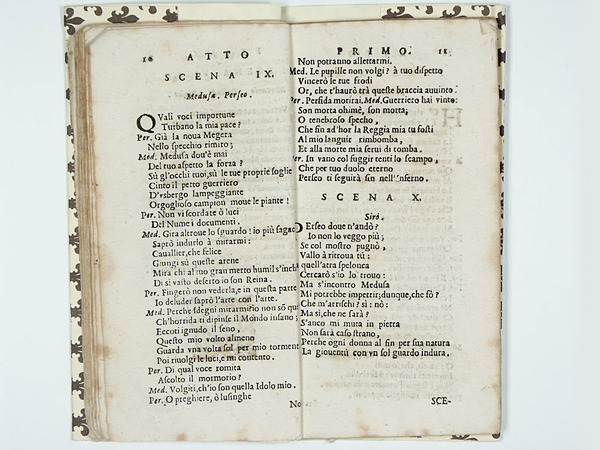 10 ATTO
SCENA IX.
Medusa. Perseo.
QVali voci importune
Turbano la mia pace?
Per. Già la noua Megera
Nello specchio rimiro;
Med. Medusa dou'è mai
Del tuo aspetto la forza?
Sù gl'occhi tuoi, sù le tue proprie soglie
Cinto il petto guerriero
D'vsbergo lampeggiante
Orgoglioso campion moue le piante!
Per. Non vi scordate ò luci
Del Nume i documenti.
Med. Gira altroue lo sguardo: io più sagace
Saprò indurlo à mirarmi:
Cauallier, che felice
Giungi sù queste arene
Mira ch'à al tuo gran merto humil s'inchi
Di sì vasto deserto io son Reina.
Per. Fingerò non vederla, e in questa parte
Io deluder saprò l'arte con l'arte.
Med. Perche sdegni mirarmi? io non sò qu
Ch'horrida ti dipinse il Mondo insano;
Eccoti ignudo il seno,
Questo mio volto almeno
Guarda vna volta sol per mio torment
Poi riuolgi le luci, e mi contento.
Per. Di qual voce romita
Ascolto il mormorio?
Med. Volgiti, ch'io son quella Idolo mio.
Per. O preghiere, ò lusinghe
No
PRIMO. 11
Non potranno allettarmi.
Med. Le pupille non volgi? à tuo dispetto
Vincerò le tue frodi
Or, che t'haurò trà queste braccia auuinto.
Per. Perfida morirai. Med. Guerriero hai vinto:
Son morta ohimè, son morta;
O tenebroso specho,
Che sin ad'hor la Reggia mia tu fosti
Al mio languir rimbomba,
Et alla morte mia serui di tomba.
Per. In vano col fuggir tenti lo scampo,
Che per tuo duolo eterno
Perseo ti seguirà sin nell'inferno.
SCENA X.
Siro.
Erseo doue n'andò?
Io non lo veggo più;
Se col mostro pugnò,
Vallo à ritroua tù:
quell'atra spelonca
Cercarò s'io lo trouo:
Ma s'incontro Medusa
Mi potrebbe impetrir; dunque, che fò?
Che m'arrischi? sì: nò:
Ma sì, che ne sarà?
S'anco mi muta in pietra
Non sarà caso strano,
Perche ogni donna al fin per sua natura
La giouentù con vn sol guardo indura.
SCE-